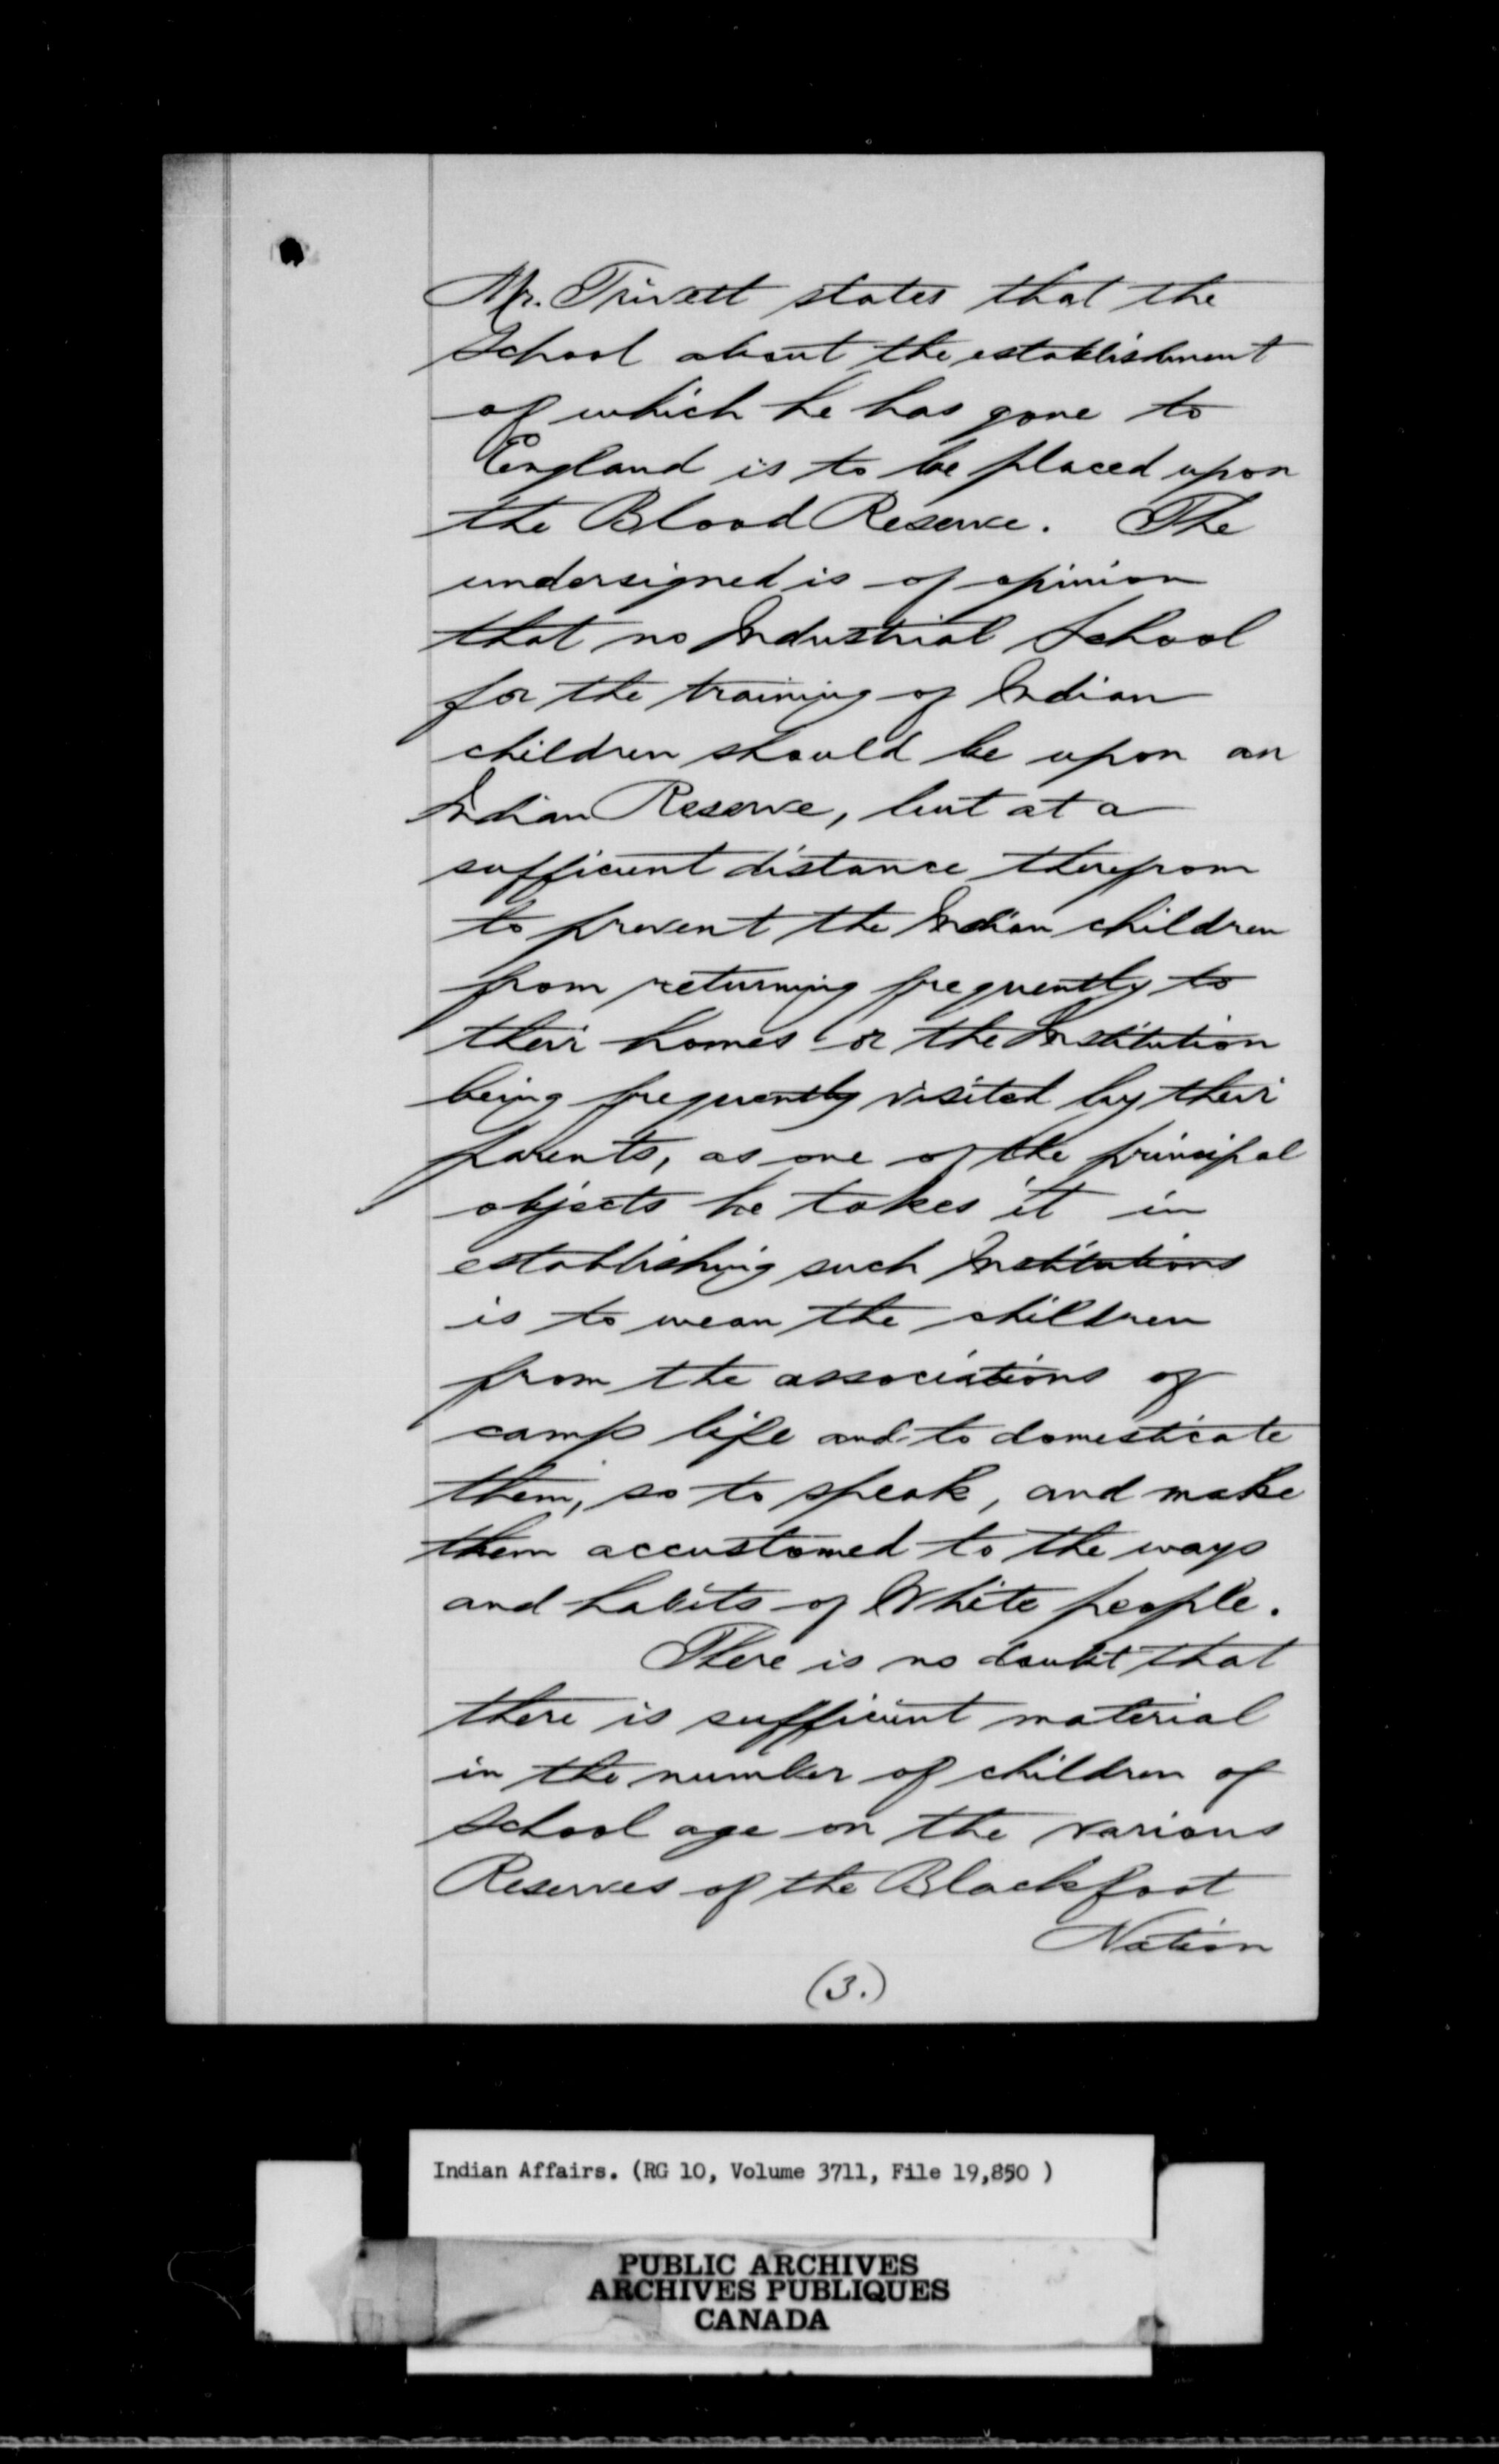 Mr. Trivett states that the
School about the establishment
of which he has gone to
England is to be placed upon
the Blood Reserve. The
undersigned is of opinion
that no Industrial School
for the training of Indian
children should be upon an
Indian Reserve, but at a
sufficient distance therefrom
to prevent the Indian children
from returning frequently to
their homes or the Institution
being frequently visited by their
parents, as one of the principal
objects he takes it in
establishing such Institutions
is to wean the children
from the associations of
camp life and to domesticate
them, so to speak, and make
them accustomed to the ways
and habits of White people.
There is no doubt that
there is sufficient material
in the number of children of
School age on the various
Reserves of the Blackfoot
Nation
(3.)
Indian Affairs. (RG 10, Volume 3711, File 19,850 )
PUBLIC ARCHIVES
ARCHIVES PUBLIQUES
CANADA